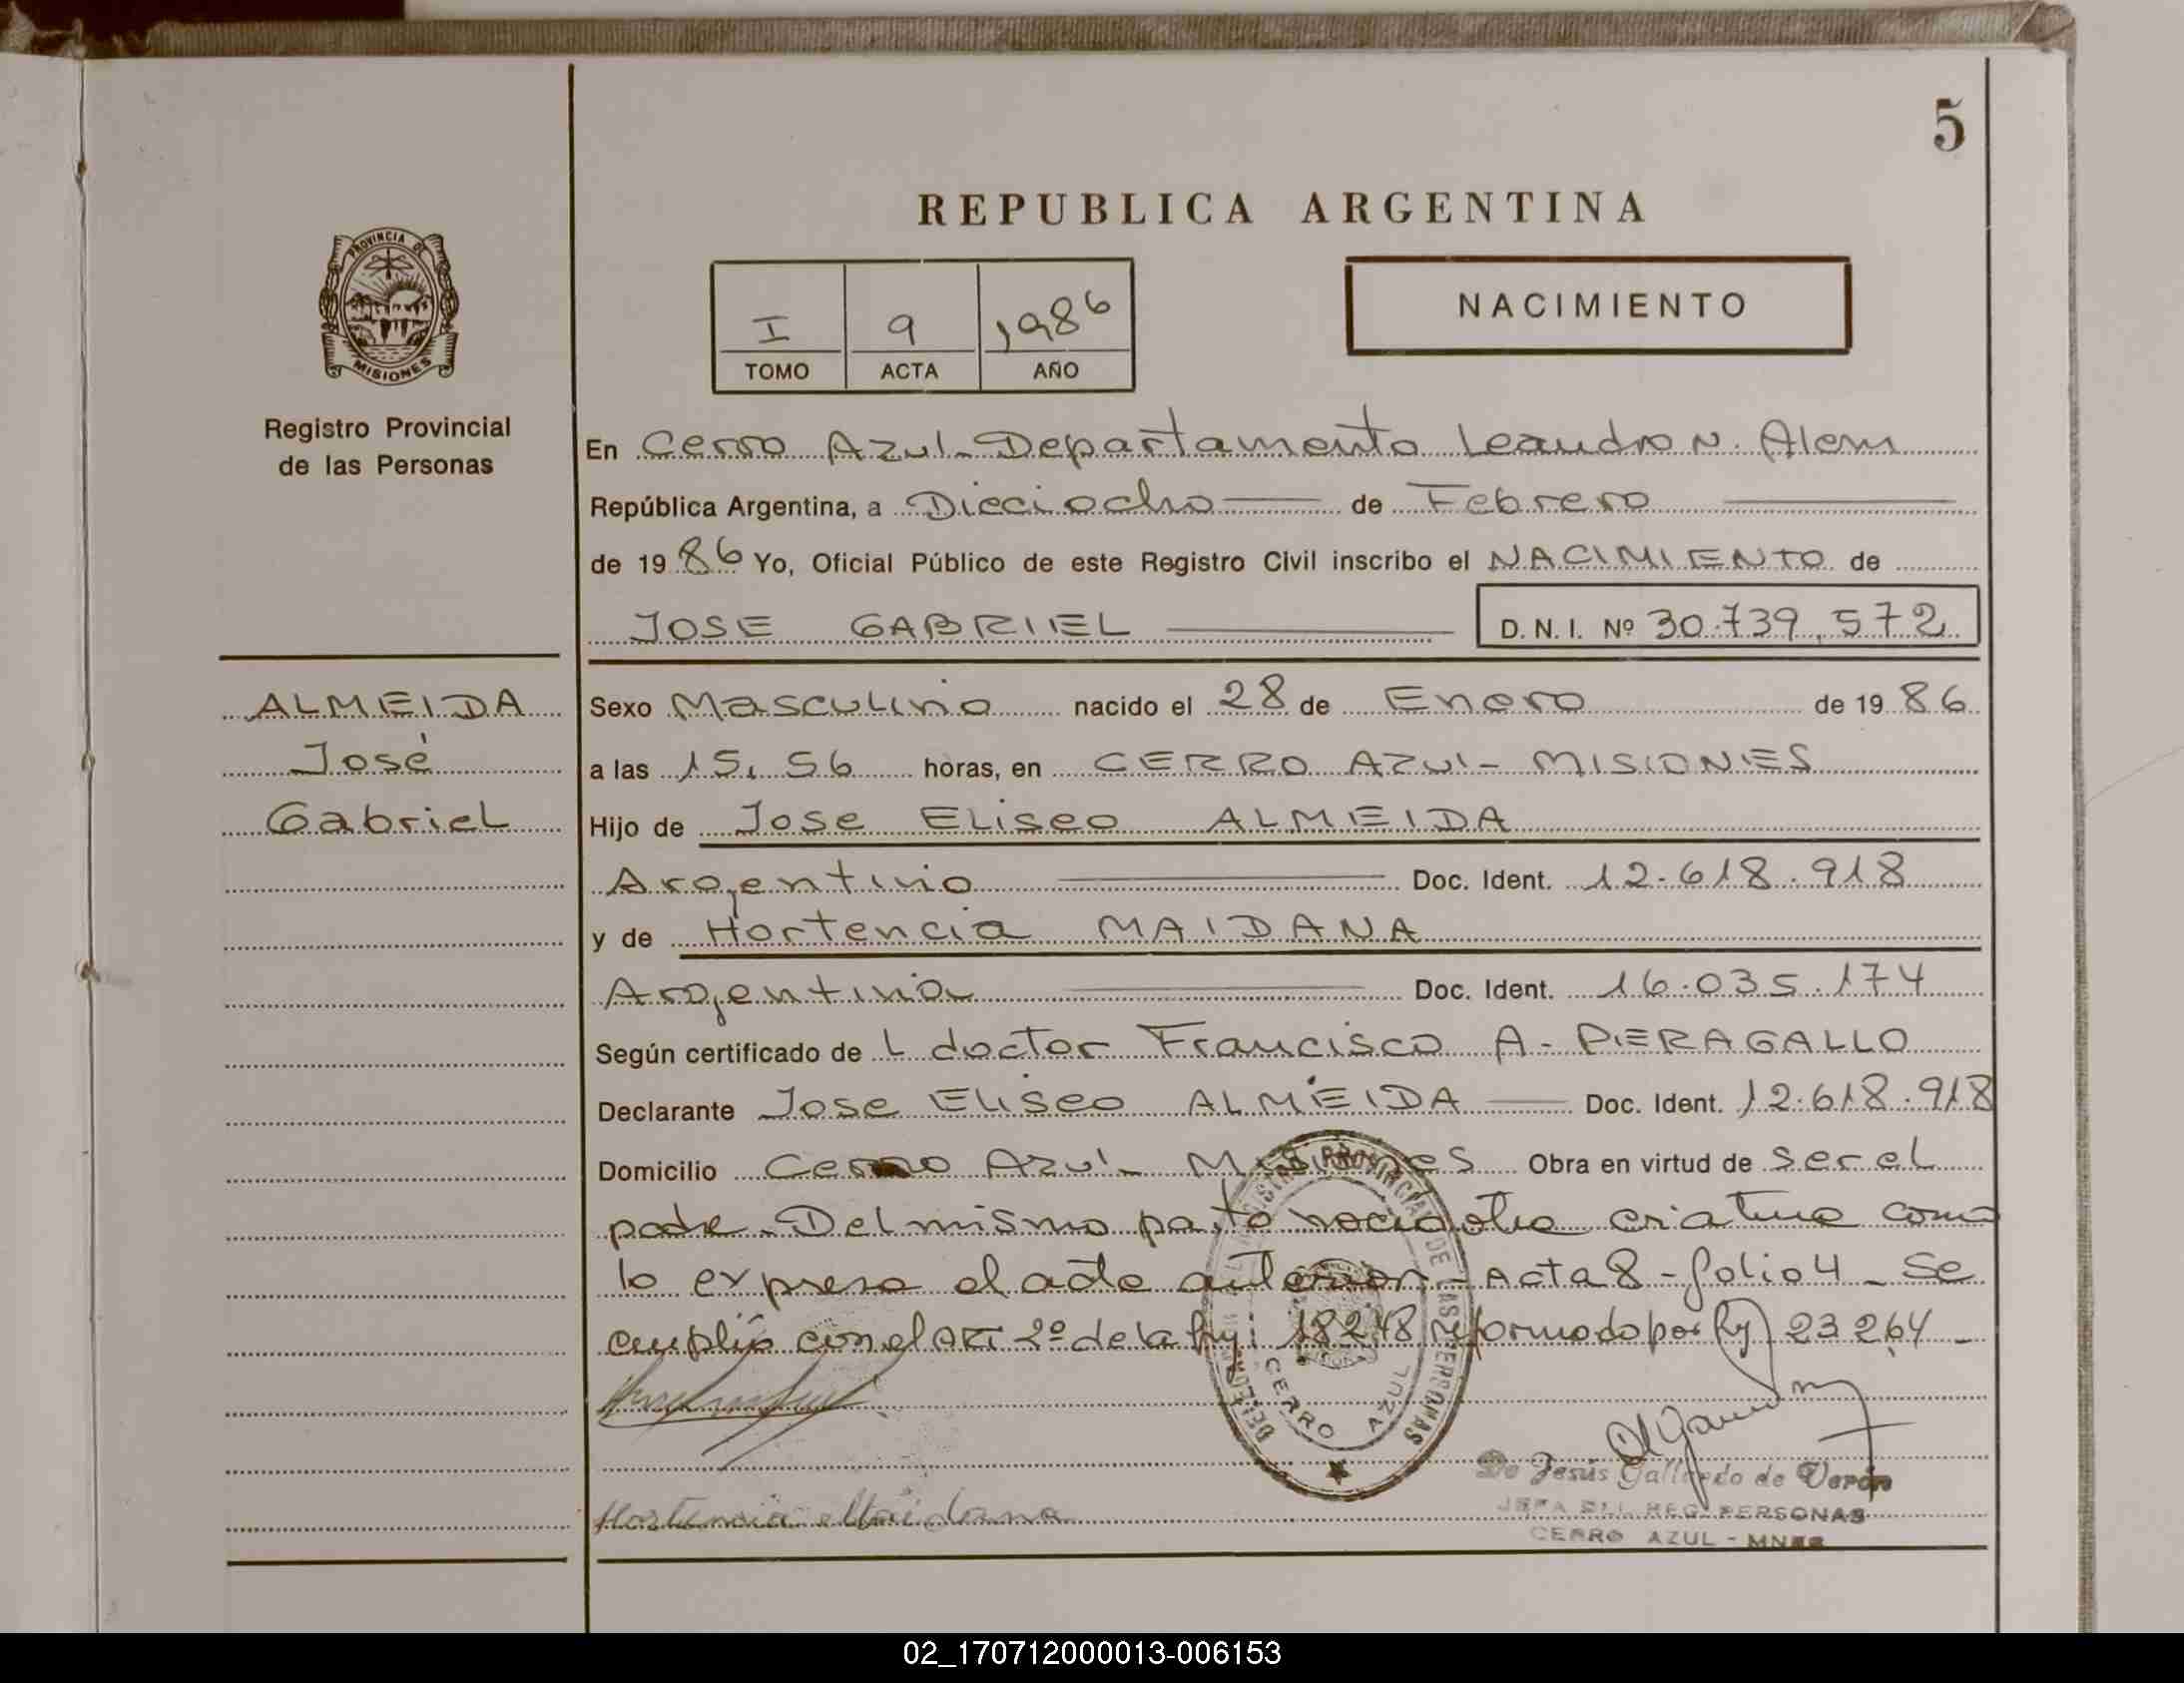 5
REPUBLICA ARGENTINA
NACIMIENTO
I 9 1986
TOMO ACTA AÑO
PROVINCIA DE
MISIONES
Registro Provincial
de las Personas
ALMEIDA
José
Gabriel
En Cerro Azul - Departamento Leandro N. Alem
República Argentina, a Dieciocho de Febrero
de 1986 Yo, Oficial Público de este Registro Civil inscribo el NACIMIENTO de
JOSE GABRIEL D.N.I. Nº 30.739.572
Sexo Masculino nacido el 28 de Enero de 1986
a las 15,56 horas, en CERRO AZUL - MISIONES
Hijo de Jose Eliseo ALMEIDA
Argentino Doc. Ident. 12.618.918
y de Hortencia MAIDANA
Argentina Doc. Ident. 16.035.174
Según certificado de L doctor Francisco A. PIERAGALLO
Declarante Jose Eliseo ALMEIDA Doc. Ident. 12.618.918
Domicilio Cerro Azul - Misiones Obra en virtud de ser el
padre. Del mismo parto nacio otra criatura como
lo expresa el acta anterior - Acta 8 - folio 4 - Se
cumplió con el ART 2º de la ley: 18248 reformado por ley 23264 -
REGISTRO PROVINCIAL DE LAS PERSONAS
CERRO AZUL
Hortencia Maidana
De Jesús Gallardo de Verón
JEFA DEL REG. PERSONAS
CERRO AZUL - MNES
02_170712000013-006153